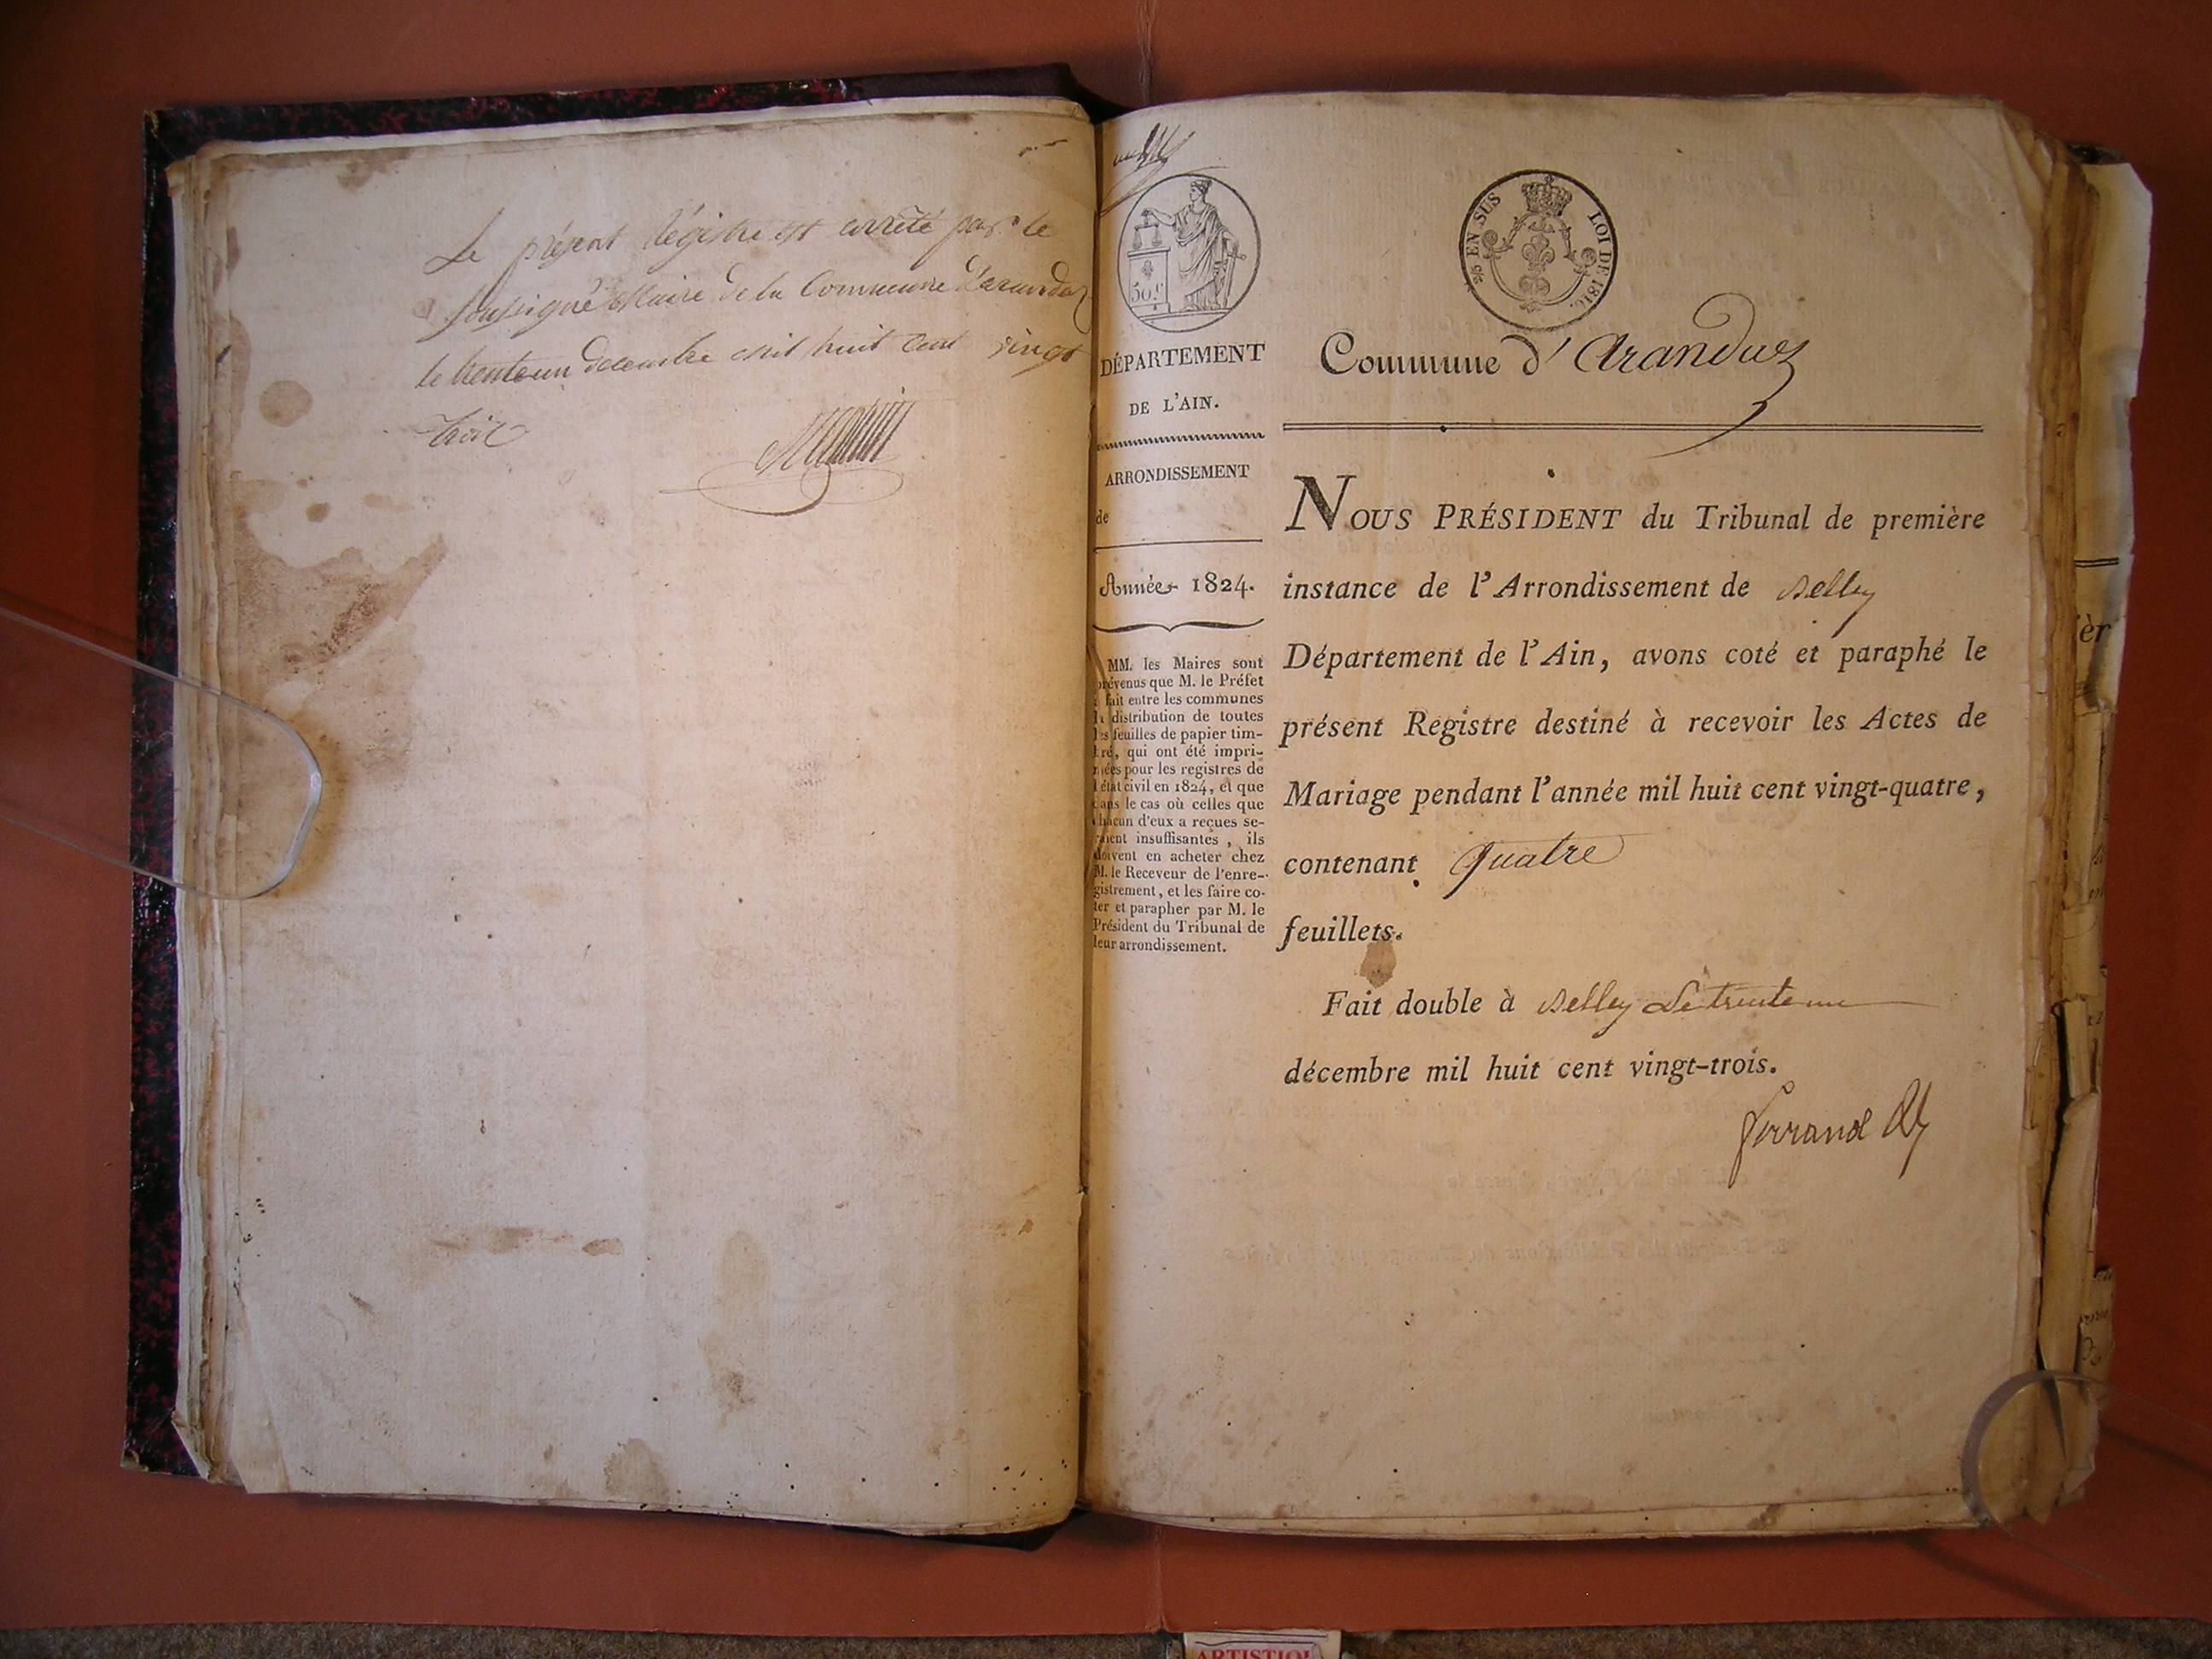 Le présent Régistre est arrêté par le
soussigné Maire de la Commune d'arandas
le trente un decembre mil huit cent vingt
trois
50 c
2/5 EN SUS
LOI DE 1816.
DÉPARTEMENT
DE L'AIN.
ARRONDISSEMENT
de
Année 1824.
MM. les Maires sont
prévenus que M. le Préfet
a fait entre les communes
la distribution de toutes
les feuilles de papier tim-
bré, qui ont été impri-
mées pour les registres de
l'état civil en 1824, et que
dans le cas où celles que
chacun d'eux a reçues se-
raient insuffisantes, ils
doivent en acheter chez
M. le Receveur de l'enre-
gistrement, et les faire co-
ter et parapher par M. le
Président du Tribunal de
leur arrondissement.
Commune d' Arandas
NOUS PRÉSIDENT du Tribunal de première
instance de l'Arrondissement de Belley
Département de l'Ain, avons coté et paraphé le
présent Registre destiné à recevoir les Actes de
Mariage pendant l'année mil huit cent vingt-quatre,
contenant quatre
feuillets.
Fait double à Belley Le trente un
décembre mil huit cent vingt-trois.
ferrand
èr
ARTISTIQU